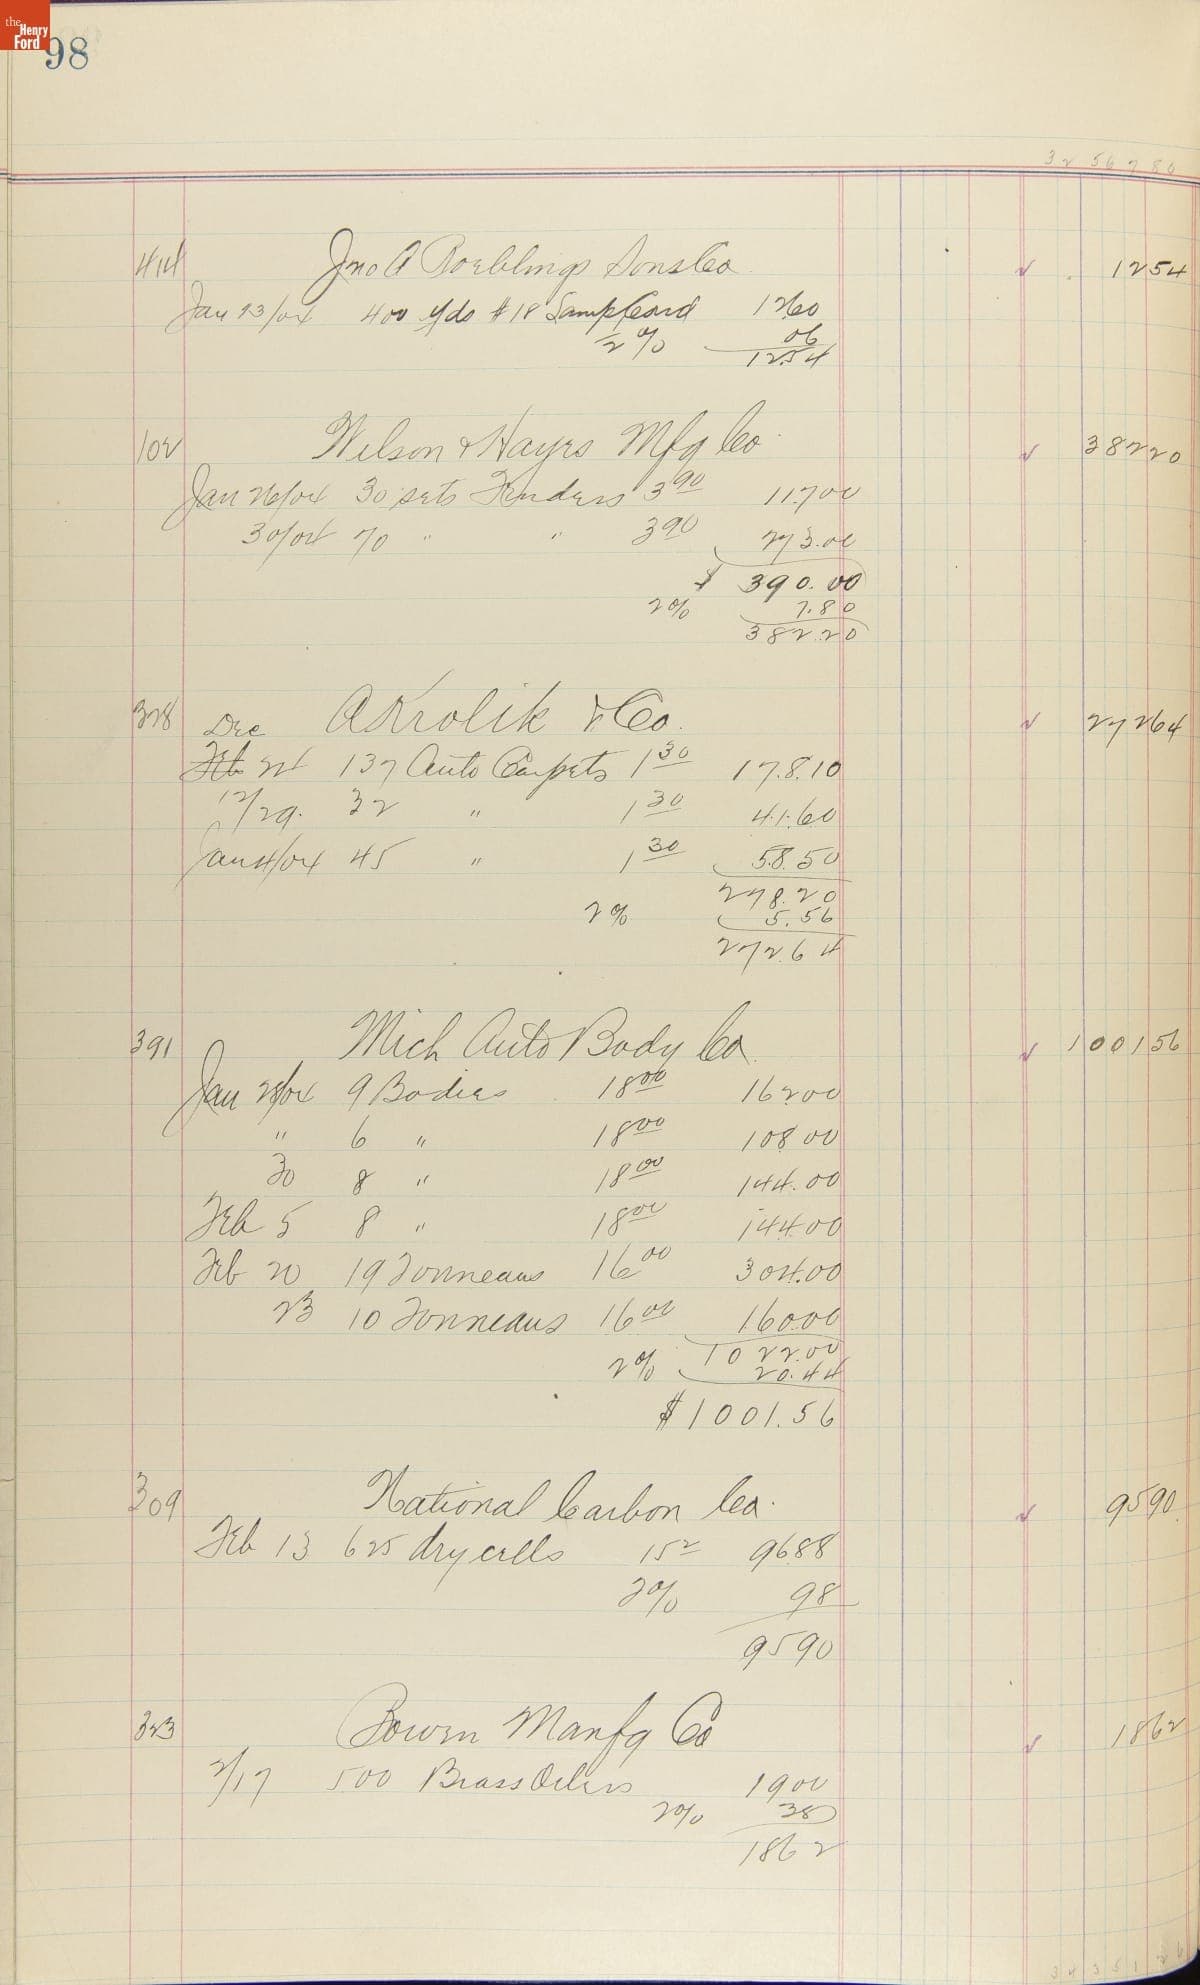 the Henry Ford
98
32 567 86
414 Jno A Roeblings Sons Co 1254
Jan 23/04 400 yds #18 Lamp Cord 1260
1/2 % 06
1254
102 Wilson & Hayes Mfg Co 38220
Jan 26/04 30 sets Fenders 3 90 117 00
30/04 70 " " 3 90 273.00
$ 390.00
2% 7.80
382.20
328 A Krolik & Co. 27264
Dec
Feb 21 137 Auto Carpets 1 30 178.10
12/29. 32 " 1 30 41.60
Jan 4/04 45 " 1 30 58.50
278.20
2% 5.56
272.64
391 Mich Auto Body Co. 100156
Jan 28/04 9 Bodies 18 00 162 00
" 6 " 18 00 108 00
30 8 " 18 00 144.00
Feb 5 8 " 18 00 144 00
Feb 20 19 Tonneaus 16 00 304.00
23 10 Tonneaus 16 00 160.00
1022.00
2% 20.44
$1001.56
309 National Carbon Co. 9590
Feb 13 625 dry cells 15 2 9688
2% 98
9590
323 Bowen Manfg Co 1862
2/17 500 Brass Oilers 1900
2% 38
1862